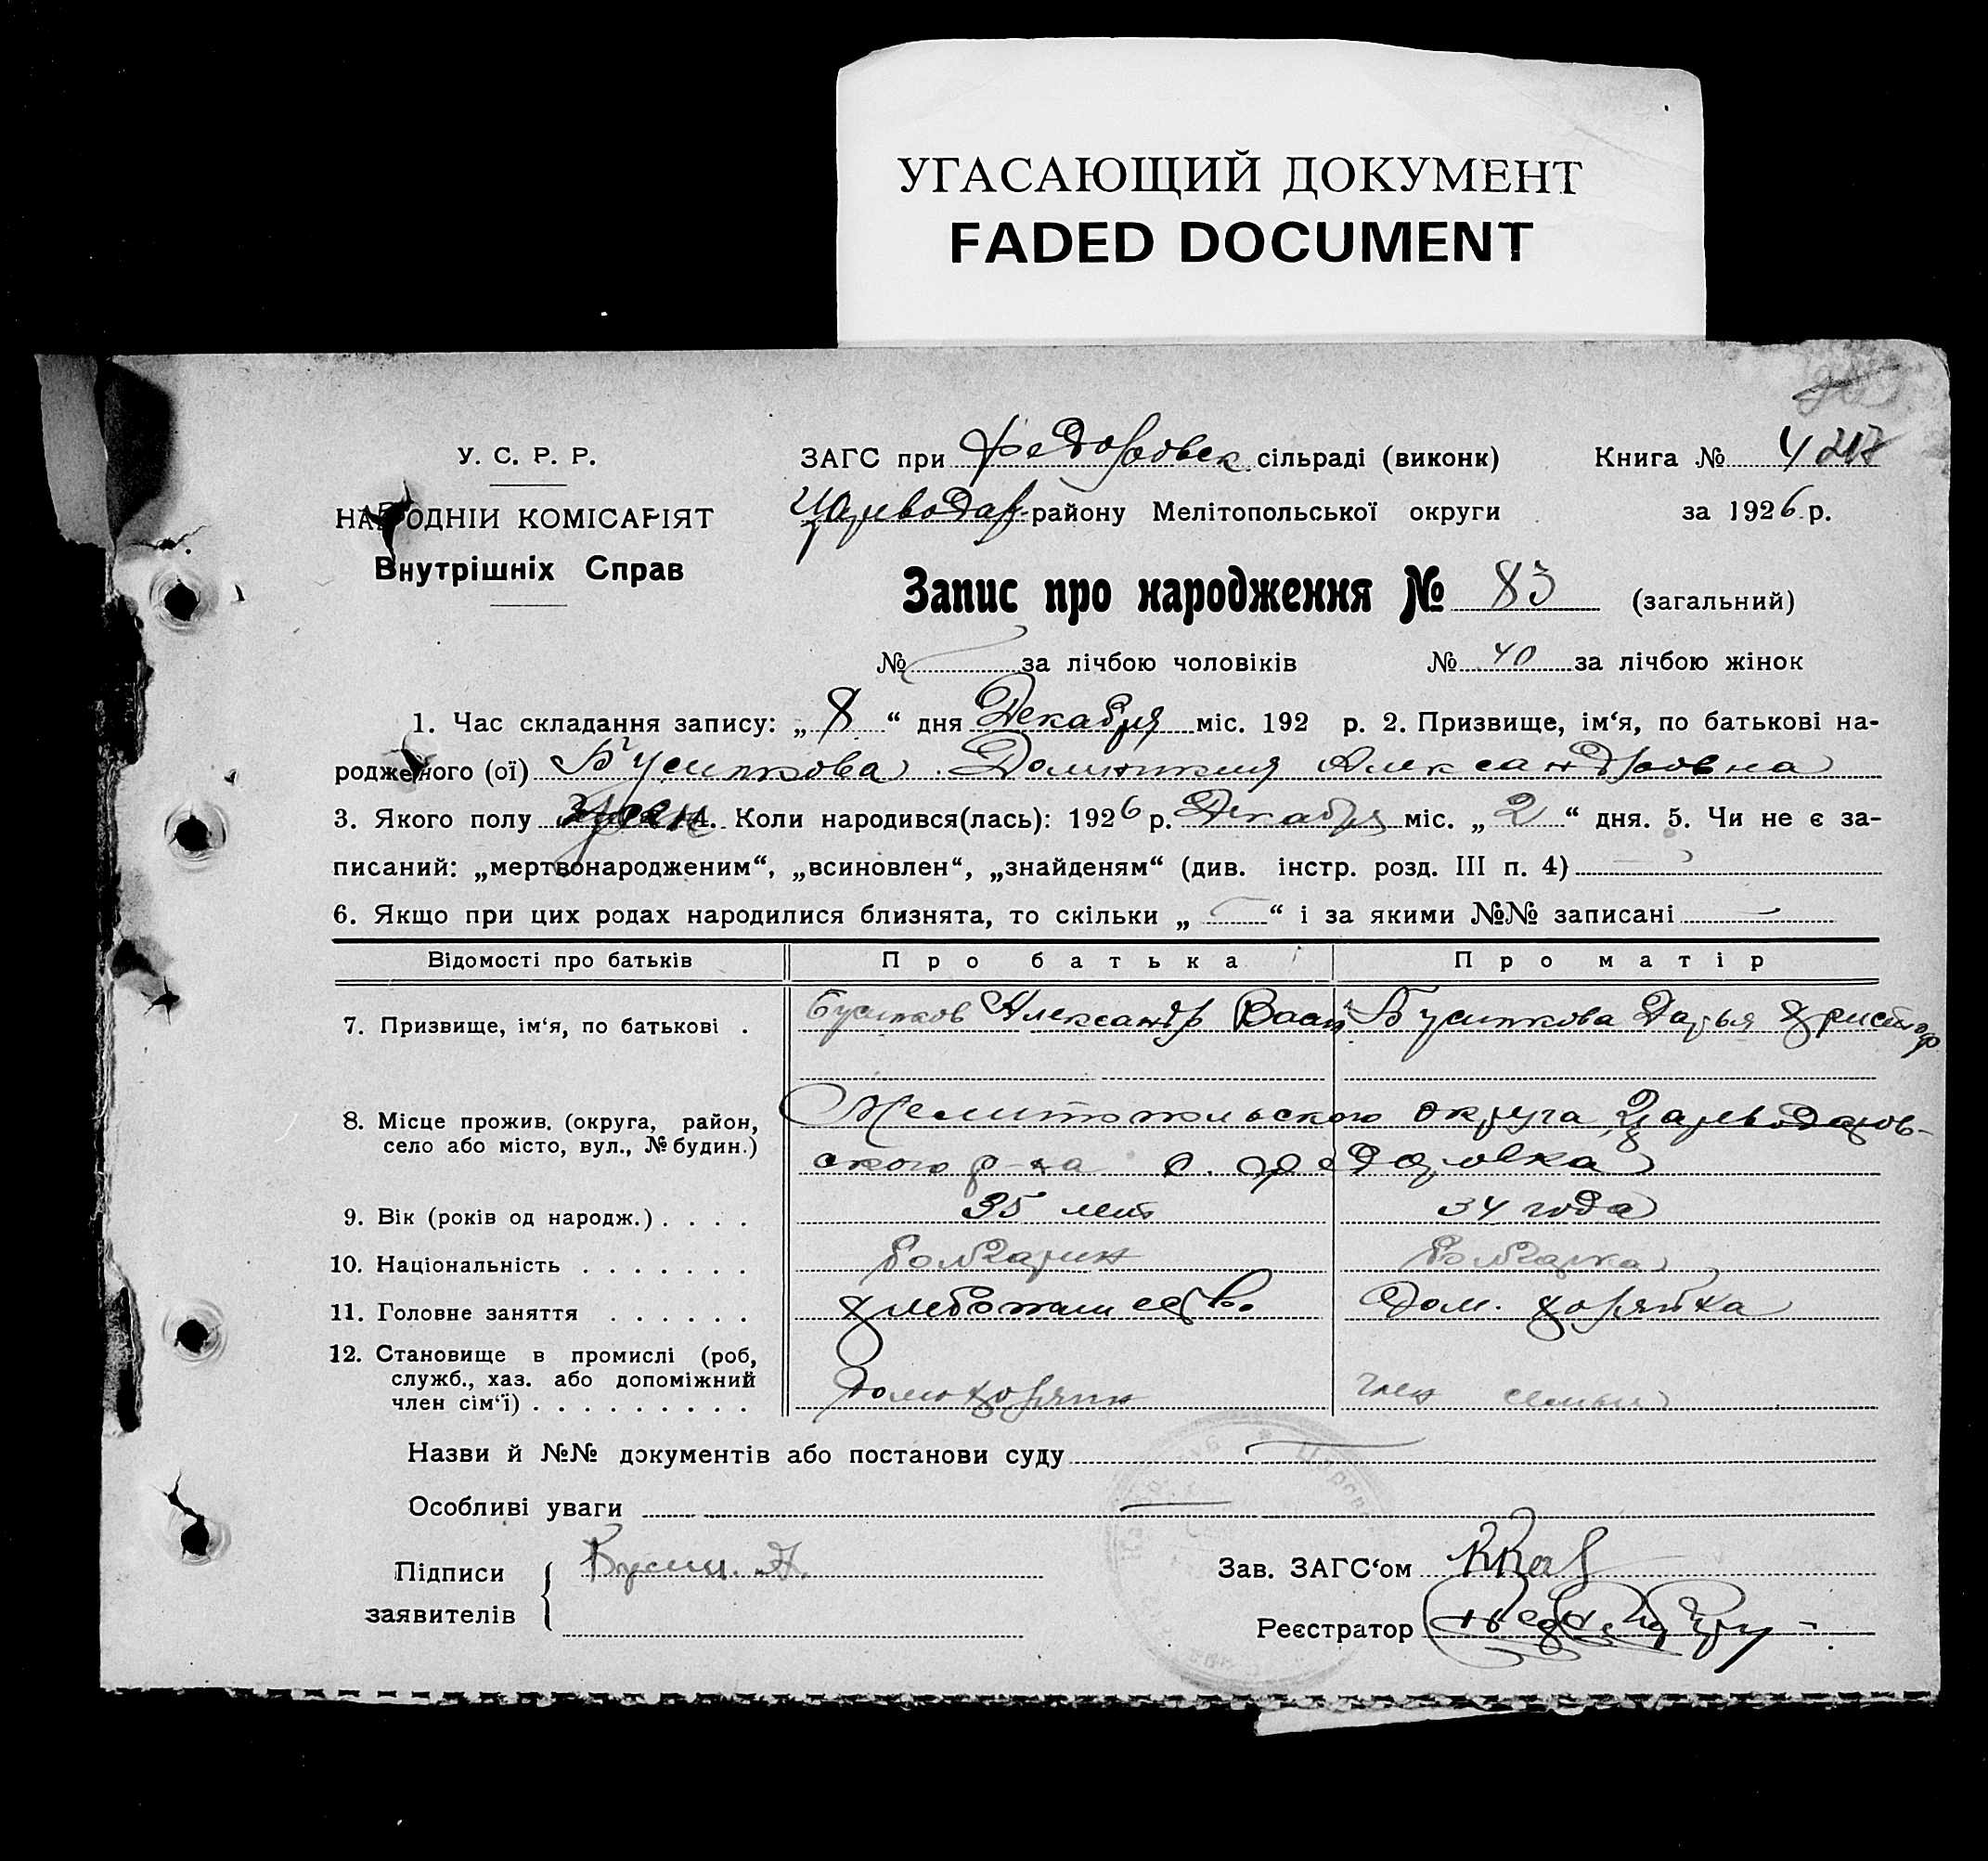 УГАСАЮЩИЙ ДОКУМЕНТ
FADED DOCUMENT
У. С. Р. Р.
НАРОДНІИ КОМІСАРІЯТ
Внутрішніх Справ
ЗАГС при Федоровск сільраді (виконк) Книга № 4
Цареводар- району Мелітопольської округи за 1926 р.
Запис про народження № 83 (загальний)
№ за лічбою чоловіків № 40 за лічбою жінок
1. Час складання запису: „ 8 “ дня Декабря міс. 192 р. 2. Призвище, ім‘я, по батькові на-
родженого (ої) Бусипкова Домникия Александровна
3. Якого полу жен 4. Коли народився(лась): 1926 р. Декабря міс. „ 2 “ дня. 5. Чи не є за-
писаний: „мертвонародженим“, „всиновлен“, „знайденям“ (див. інстр. розд. III п. 4)
6. Якщо при цих родах народилися близнята, то скільки „ “ і за якими №№ записані
Відомості про батьків Про батька Про матір
7. Призвище, ім‘я, по батькові . Бусипков Александр Васил Бусипкова Дарья Христоф
8. Місце прожив. (округа, район,
село або місто, вул., № будин.)
Мелитопольского округа Цареводаров-
ского р-на с. Федоровка
9. Вік (років од народж.) . . . . 35 лет 34 года
10. Національність . . . . . . . Болгарин Болгарка
11. Головне заняття . . . . . . хлебопашество. Дом. хозяйка
12. Становище в промислі (роб,
служб., хаз. або допоміжний
член сім‘ї) . . . . . . . . . Домохозяин член семьи
Назви й №№ документів або постанови суду
Особливі уваги
Підписи
заявителів
Зав. ЗАГС‘ом
Реєстратор